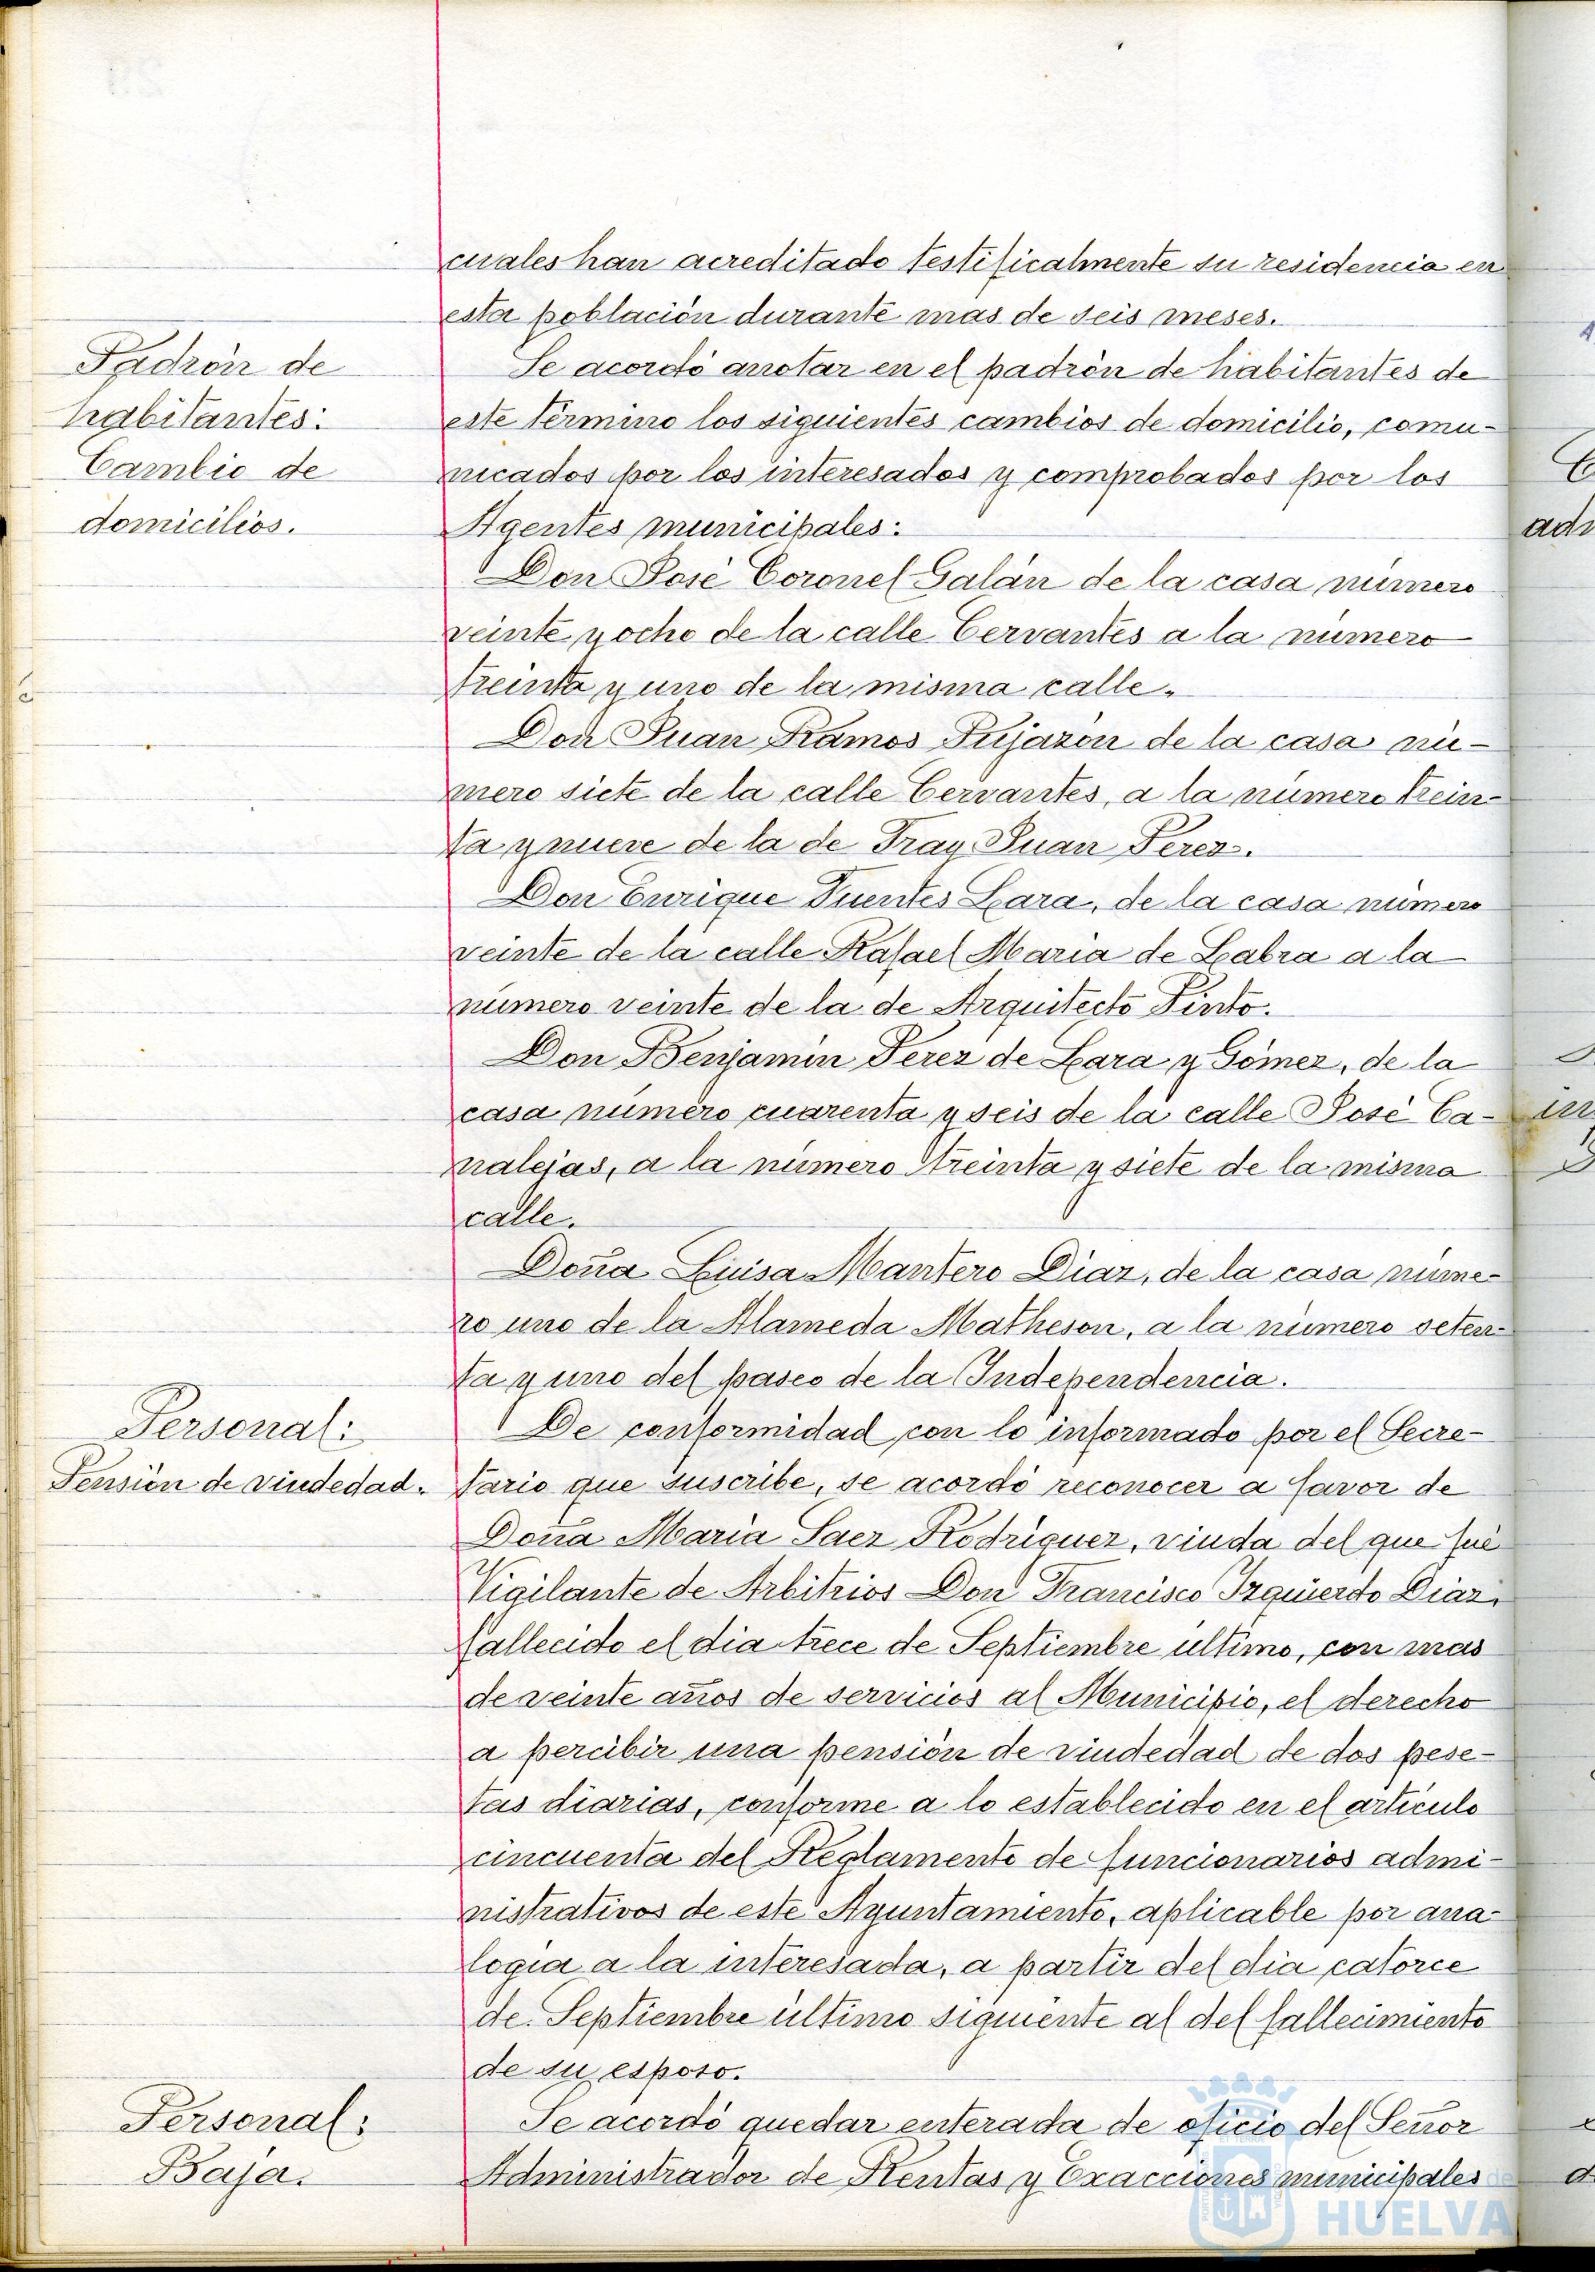 cuales han acreditado testificalmente su residencia en
esta población durante mas de seis meses.
Padrón de
habitantes:
Cambio de
domicilios.
Se acordó anotar en el padrón de habitantes de
este término los siguientes cambios de domicilio, comu-
nicados por los interesados y comprobados por los
Agentes municipales:
Don José Coronel Galán de la casa número
veinte y ocho de la calle Cervantes a la número
treinta y uno de la misma calle.
Don Juan Ramos Pujazón de la casa nú-
mero siete de la calle Cervantes, a la número trein-
ta y nueve de la de Fray Juan Perez.
Don Enrique Fuentes Lara, de la casa número
veinte de la calle Rafael Maria de Labra a la
número veinte de la de Arquitecto Pinto.
Don Benjamin Perez de Lara y Gómez, de la
casa número cuarenta y seis de la calle José Ca-
nalejas, a la número treinta y siete de la misma
calle.
Doña Luisa Mantero Diaz, de la casa núme-
ro uno de la Alameda Matheson, a la número seten-
ta y uno del paseo de la Independencia.
Personal:
Pensión de viudedad.
De conformidad con lo informado por el Secre-
tario que suscribe, se acordó reconocer a favor de
Doña Maria Saez Rodríguez, viuda del que fué
Vigilante de Arbitrios Don Francisco Izquierdo Diaz,
fallecido el dia trece de Septiembre último, con mas
de veinte años de servicios al Municipio, el derecho
a percibir una pensión de viudedad de dos pese-
tas diarias, conforme a lo establecido en el artículo
cincuenta del Reglamento de funcionarios admi-
nistrativos de este Ayuntamiento, aplicable por ana-
logía a la interesada, a partir del dia catorce
de Septiembre último siguiente al del fallecimiento
de su esposo.
Personal:
Baja.
Se acordó quedar enterada de oficio del Señor
Administrador de Rentas y Exacciones municipales
HUELVA